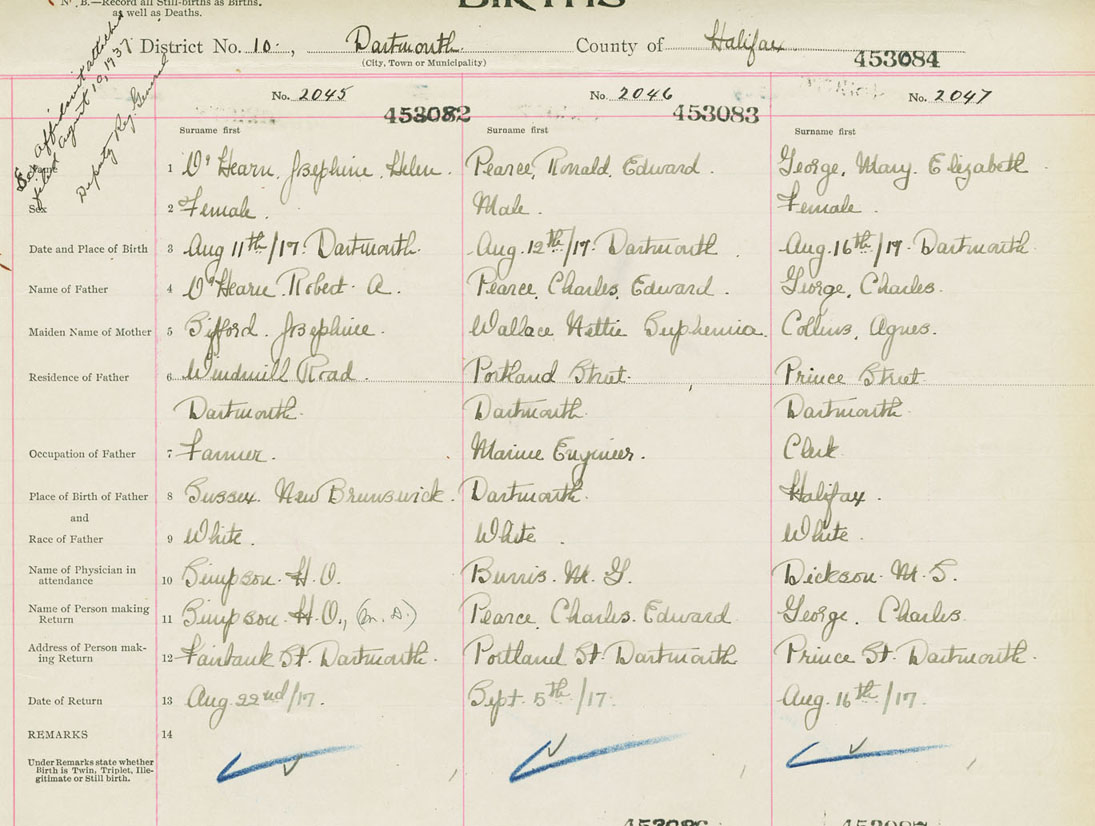 N. B.—Record all Still-births as Births.
as well as Deaths.
BIRTHS
See affidavit attached
filed August 10, 1937
Deputy Reg. General
District No. 10., Dartmouth. County of Halifax
(City, Town or Municipality)
453084
No. 2045 No. 2046 No. 2047
453082 453083
Surname first Surname first Surname first
Name 1 O'Hearn, Josephine, Helen. Pearce, Ronald, Edward. George, Mary, Elizabeth.
Sex 2 Female. Male. Female.
Date and Place of Birth 3 Aug 11th/17. Dartmouth. Aug. 12th/17. Dartmouth. Aug. 16th/17. Dartmouth.
Name of Father 4 O'Hearn, Robert. A. Pearce, Charles, Edward. George, Charles.
Maiden Name of Mother 5 Gifford. Josephine. Wallace Nettie Euphemia. Collins, Agnes.
Residence of Father 6 Windmill Road. Portland Street. Prince Street
Dartmouth. Dartmouth. Dartmouth.
Occupation of Father 7 Farmer. Marine Engineer. Clerk.
Place of Birth of Father 8 Sussex. New Brunswick. Dartmouth. Halifax.
and
Race of Father 9 White. White. White.
Name of Physician in
attendance 10 Simpson. H. O. Burris. M. G. Dickson. M. S.
Name of Person making
Return 11 Simpson. H. O., (M. D.) Pearce, Charles. Edward George, Charles
Address of Person mak-
ing Return 12 Fairbank St. Dartmouth. Portland St. Dartmouth Prince St. Dartmouth.
Date of Return 13 Aug. 22nd/17. Sept. 5th/17. Aug. 16th/17.
REMARKS 14
Under Remarks state whether
Birth is Twin, Triplet, Ille-
gitimate or Still birth.